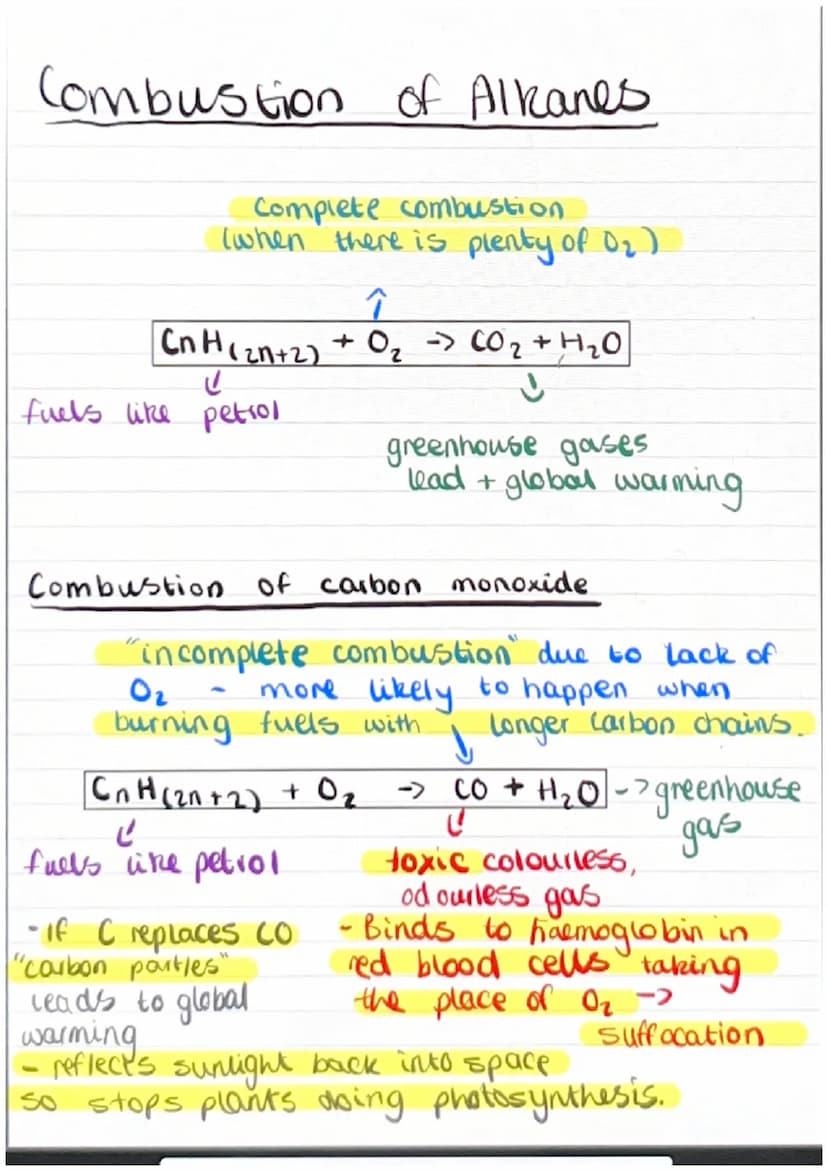 Combustion of Alkanes
Complete combustion
(when there is plenty of O₂)
↑
CnH(2n+2) + O₂ -> CO₂ + H₂O
fuels like petrol
greenhouse gases
lead + global warming
Combustion of carbon monoxide
"incomplete combustion" due to lack of
O₂ - more likely to happen when
burning fuels with longer carbon chains.
CnH(2n+2) + O₂ -> CO + H₂O -> greenhouse
gas
fuels like petrol
toxic colourless,
odourless gas
- If C replaces CO
"carbon partles"
leads to global
warming
- reflects sunlight back into space
so stops plants doing photosynthesis.
- Binds to haemoglobin in
red blood cells taking
the place of O₂ ->
suffocation